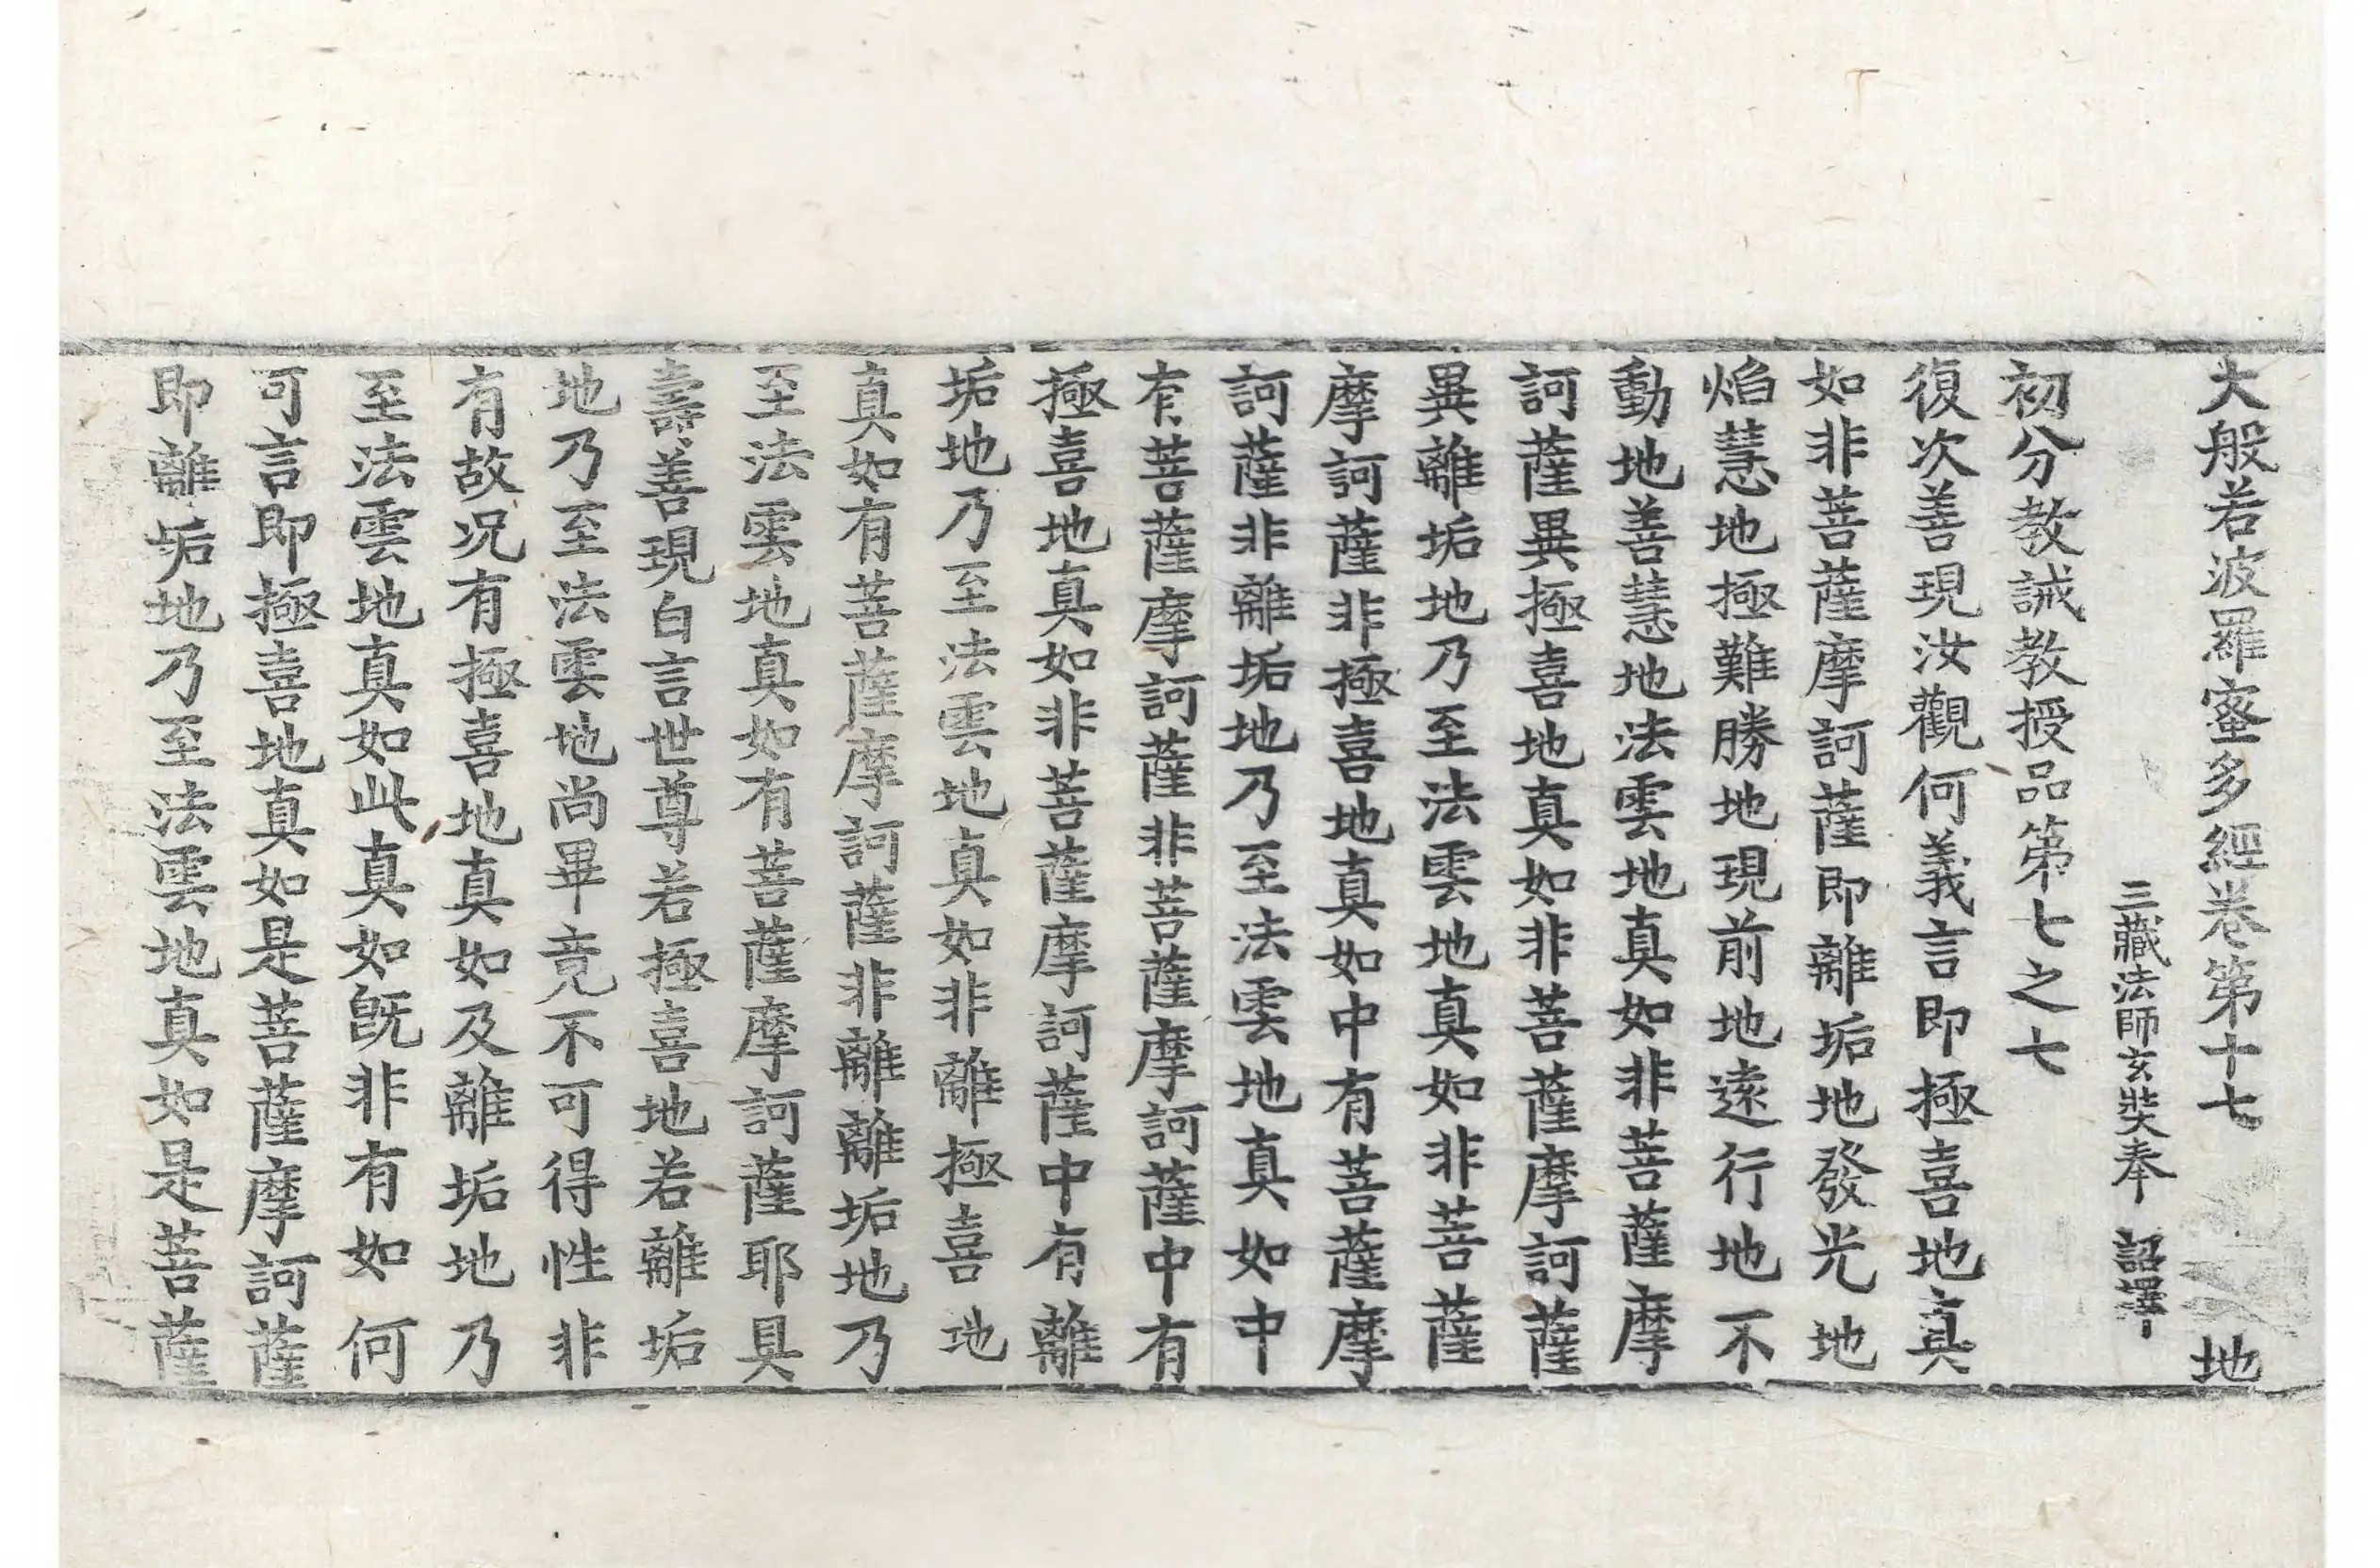 大般若波羅蜜多經卷第十七 地
三藏法師玄奘奉 詔譯
初分教誡教授品第七之七
復次善現汝觀何義言即極喜地真
如非菩薩摩訶薩即離垢地發光地
焰慧地極難勝地現前地遠行地不
動地善慧地法雲地真如非菩薩摩
訶薩異極喜地真如非菩薩摩訶薩
異離垢地乃至法雲地真如非菩薩
摩訶薩非極喜地真如中有菩薩摩
訶薩非離垢地乃至法雲地真如中
有菩薩摩訶薩非菩薩摩訶薩中有
極喜地真如非菩薩摩訶薩中有離
垢地乃至法雲地真如非離極喜地
真如有菩薩摩訶薩非離離垢地乃
至法雲地真如有菩薩摩訶薩耶具
壽善現白言世尊若極喜地若離垢
地乃至法雲地尚畢竟不可得性非
有故况有極喜地真如及離垢地乃
至法雲地真如此真如旣非有如何
可言即極喜地真如是菩薩摩訶薩
即離垢地乃至法雲地真如是菩薩